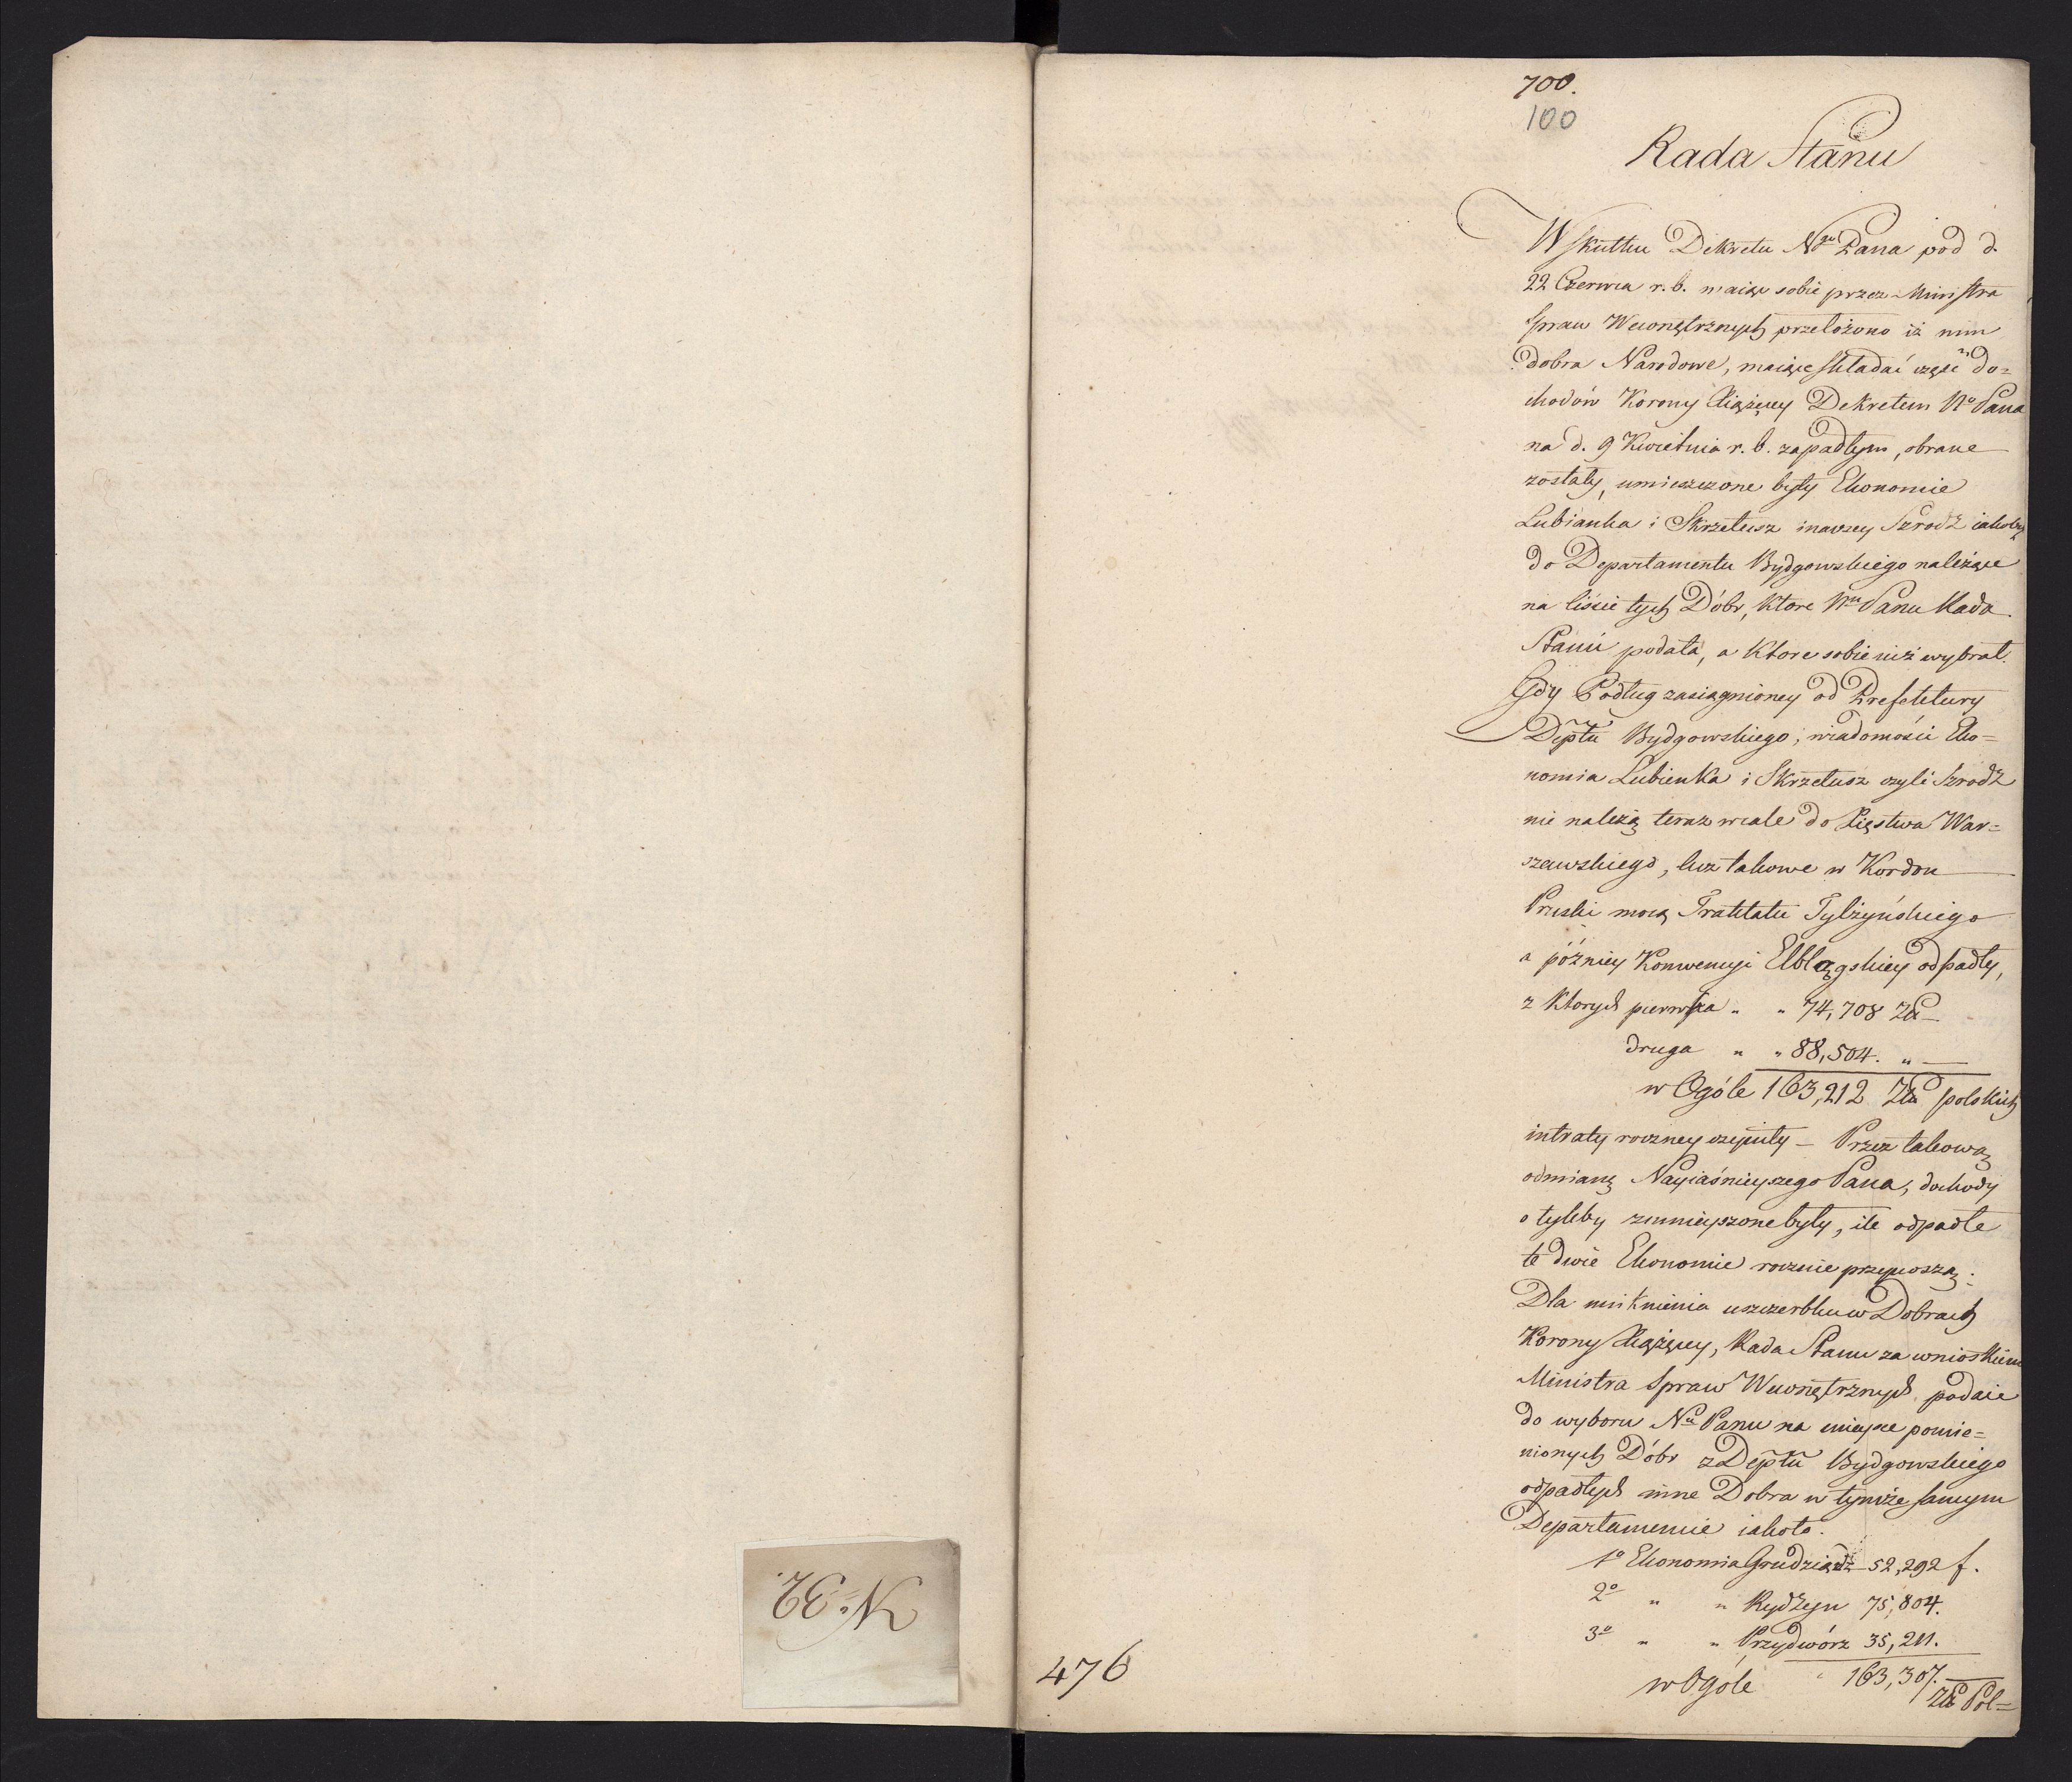 N. 32.
700.
100
Rada Stanu
W skutku Dekretu Ngo Pana pod d.
22 Czerwca r. b. maiąc sobie przez Ministra
Spraw Wewnętrznych przełożono iż nim
Dobra Narodowe, maiące składać część do=
chodów Korony Xiążęcey Dekretem No Pana
na d. 9 Kwietnia r. b. zapadłym, obrane
zostały, umieszczone były Ekonomie
Lubianka i Skrzetusz inaczey Szrodź iakoby
do Departamentu Bydgowskiego należące
na liście tych Dóbr, ktore Nmu Panu Rada
Stanu podała, a ktore sobie niż wybrał.
Gdy Podług zasiągnioney od Prefektury
Deptu Bydgowskiego, wiadomości Eko=
nomia Lubienka i Skrzetusz czyli Szrodź
nie należą teraz wcale do Xięstwa War=
szawskiego, lecz takowe w Kordon
Pruski mocą Traktatu Tylżyńskiego
a późniey Konwencyi Elblągskiey odpadły,
z ktorych pierwsza " " 74,708 Zł
druga " " 88,504. "
w Ogóle 163,212 Zł polskich
intraty roczney czyniły – Przez takową
odmianę Nayiaśnieyszego Pana, dochody
o tyleby zmnieyszone były, ile odpadłe
te dwie Ekonomie rocznie przynoszą.
Dla uniknienia uszczerbku w Dobrach
Korony Xiążęcey, Rada Stanu za wnioskiem
Ministra Spraw Wewnętrznych podaie
do wyboru Nu Panu na mieysce pomie=
nionych Dóbr z Deptu Bydgowskiego
odpadłych inne Dobra w tymże samym
Departamencie iakoto.
1o Ekonomia Grudziądz 52,292 f.
2o " " Rydzyn 75,804.
3o " " Przydwórz 35,211.
w Ogóle 163,307.
Zł Pol=
476